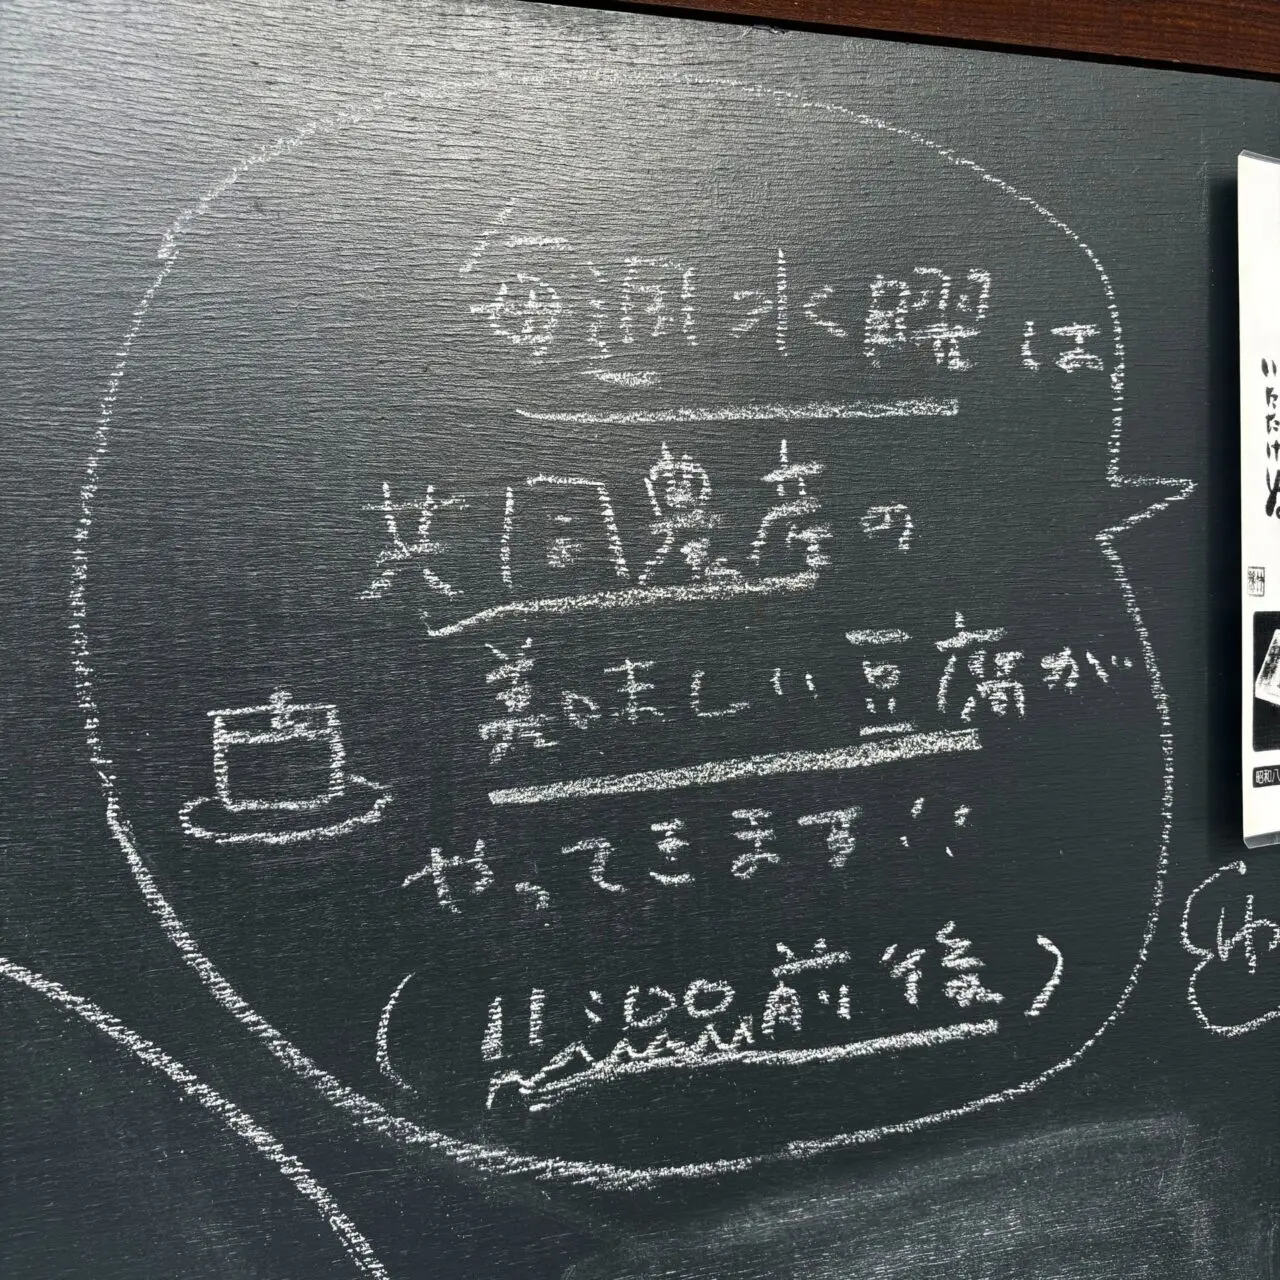 毎週水曜は
共同農産の
美味しい豆腐が
やってきます!!
(11:00前後)
いただけ
昭和八